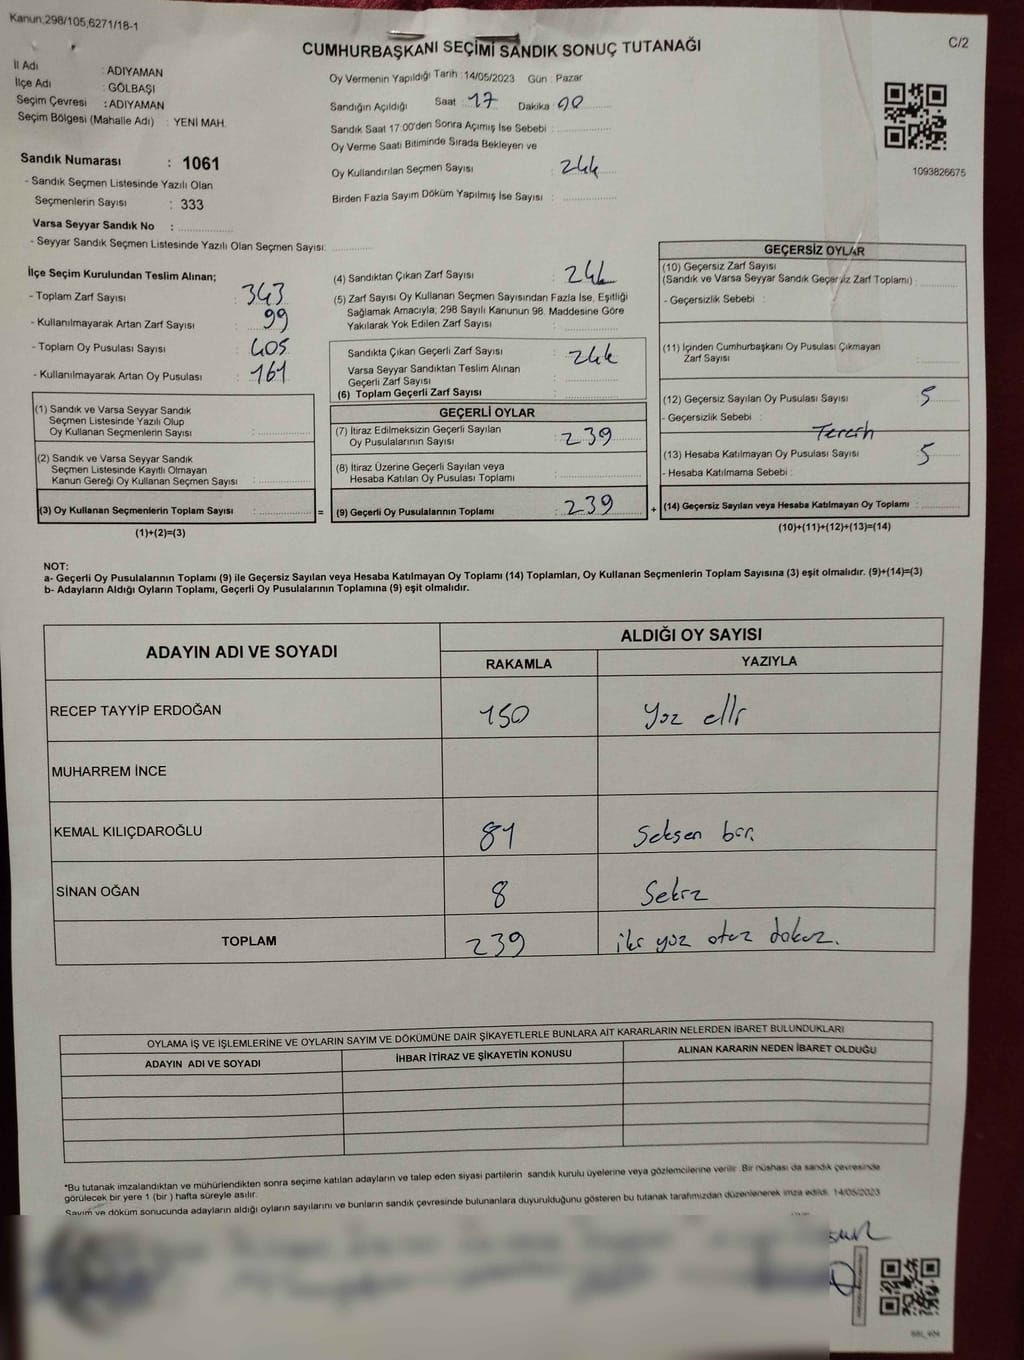 Kanun,298/105,6271/18-1
C/2
CUMHURBAŞKANI SEÇİMİ SANDIK SONUÇ TUTANAĞI
İl Adı : ADIYAMAN
İlçe Adı : GÖLBAŞI
Seçim Çevresi : ADIYAMAN
Seçim Bölgesi (Mahalle Adı) : YENİ MAH.
Sandık Numarası : 1061
- Sandık Seçmen Listesinde Yazılı Olan
Seçmenlerin Sayısı : 333
Varsa Seyyar Sandık No :
- Seyyar Sandık Seçmen Listesinde Yazılı Olan Seçmen Sayısı:
Oy Vermenin Yapıldığı Tarih : 14/05/2023 Gün : Pazar
Sandığın Açıldığı Saat : 17 Dakika : 00
Sandık Saat 17:00'den Sonra Açımış İse Sebebi :
Oy Verme Saati Bitiminde Sırada Bekleyen ve
Oy Kullandırılan Seçmen Sayısı : 244
Birden Fazla Sayım Döküm Yapılmış İse Sayısı :
1093826675
İlçe Seçim Kurulundan Teslim Alınan;
- Toplam Zarf Sayısı : 343
- Kullanılmayarak Artan Zarf Sayısı : 99
- Toplam Oy Pusulası Sayısı : 405
- Kullanılmayarak Artan Oy Pusulası : 161
(1) Sandık ve Varsa Seyyar Sandık
Seçmen Listesinde Yazılı Olup
Oy Kullanan Seçmenlerin Sayısı :
(2) Sandık ve Varsa Seyyar Sandık
Seçmen Listesinde Kayıtlı Olmayan
Kanun Gereği Oy Kullanan Seçmen Sayısı :
(3) Oy Kullanan Seçmenlerin Toplam Sayısı : =
(1)+(2)=(3)
(4) Sandıktan Çıkan Zarf Sayısı : 244
(5) Zarf Sayısı Oy Kullanan Seçmen Sayısından Fazla İse, Eşitliği
Sağlamak Amacıyla; 298 Sayılı Kanunun 98. Maddesine Göre
Yakılarak Yok Edilen Zarf Sayısı :
Sandıkta Çıkan Geçerli Zarf Sayısı : 244
Varsa Seyyar Sandıktan Teslim Alınan
Geçerli Zarf Sayısı :
(6) Toplam Geçerli Zarf Sayısı :
GEÇERLİ OYLAR
(7) İtiraz Edilmeksizin Geçerli Sayılan
Oy Pusulalarının Sayısı : 239
(8) İtiraz Üzerine Geçerli Sayılan veya
Hesaba Katılan Oy Pusulası Toplamı :
(9) Geçerli Oy Pusulalarının Toplamı : 239 +
GEÇERSİZ OYLAR
(10) Geçersiz Zarf Sayısı
(Sandık ve Varsa Seyyar Sandık Geçersiz Zarf Toplamı) :
- Geçersizlik Sebebi :
(11) İçinden Cumhurbaşkanı Oy Pusulası Çıkmayan
Zarf Sayısı :
(12) Geçersiz Sayılan Oy Pusulası Sayısı : 5
- Geçersizlik Sebebi :
(13) Hesaba Katılmayan Oy Pusulası Sayısı : 5
- Hesaba Katılmama Sebebi :
(14) Geçersiz Sayılan veya Hesaba Katılmayan Oy Toplamı :
(10)+(11)+(12)+(13)=(14)
NOT:
a- Geçerli Oy Pusulalarının Toplamı (9) ile Geçersiz Sayılan veya Hesaba Katılmayan Oy Toplamı (14) Toplamları, Oy Kullanan Seçmenlerin Toplam Sayısına (3) eşit olmalıdır. (9)+(14)=(3)
b- Adayların Aldığı Oyların Toplamı, Geçerli Oy Pusulalarının Toplamına (9) eşit olmalıdır.
ADAYIN ADI VE SOYADI ALDIĞI OY SAYISI
RAKAMLA YAZIYLA
RECEP TAYYİP ERDOĞAN 150 Yüz elli
MUHARREM İNCE
KEMAL KILIÇDAROĞLU 81 Seksen bir.
SİNAN OĞAN 8 Sekiz
TOPLAM 239 iki yüz otuz dokuz.
OYLAMA İŞ VE İŞLEMLERİNE VE OYLARIN SAYIM VE DÖKÜMÜNE DAİR ŞİKAYETLERLE BUNLARA AİT KARARLARIN NELERDEN İBARET BULUNDUKLARI
ADAYIN ADI VE SOYADI İHBAR İTİRAZ VE ŞİKAYETİN KONUSU ALINAN KARARIN NEDEN İBARET OLDUĞU
*Bu tutanak imzalandıktan ve mühürlendikten sonra seçime katılan adayların ve talep eden siyasi partilerin sandık kurulu üyelerine veya gözlemcilerine verilir. Bir nüshası da sandık çevresinde
görülecek bir yere 1 (bir ) hafta süreyle asılır.
Sayım ve döküm sonucunda adayların aldığı oyların sayılarını ve bunların sandık çevresinde bulunanlara duyurulduğunu gösteren bu tutanak tarafımızdan düzenlenerek imza edildi. 14/05/2023